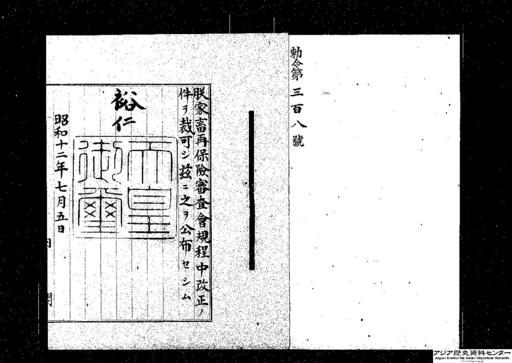 勅令第三百八號
朕家畜再保險審査會規程中改正ノ
件ヲ裁可シ玆ニ之ヲ公布セシム
裕仁
天皇
御璽
昭和十二年七月五日
アジア歴史資料センター
Japan Center for Asian Historical Records